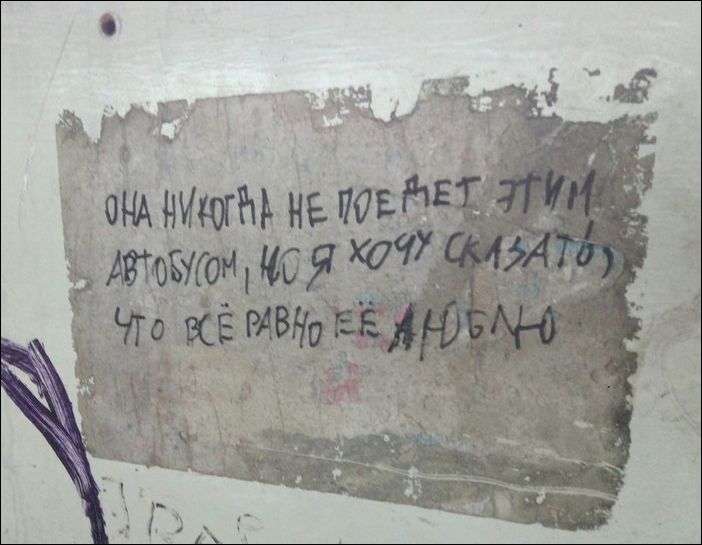 ОНА НИКОГДА НЕ ПОЕДЕТ ЭТИМ
АВТОБУСОМ, НО Я ХОЧУ СКАЗАТЬ,
ЧТО ВСЁ РАВНО ЕЁ ЛЮБЛЮ